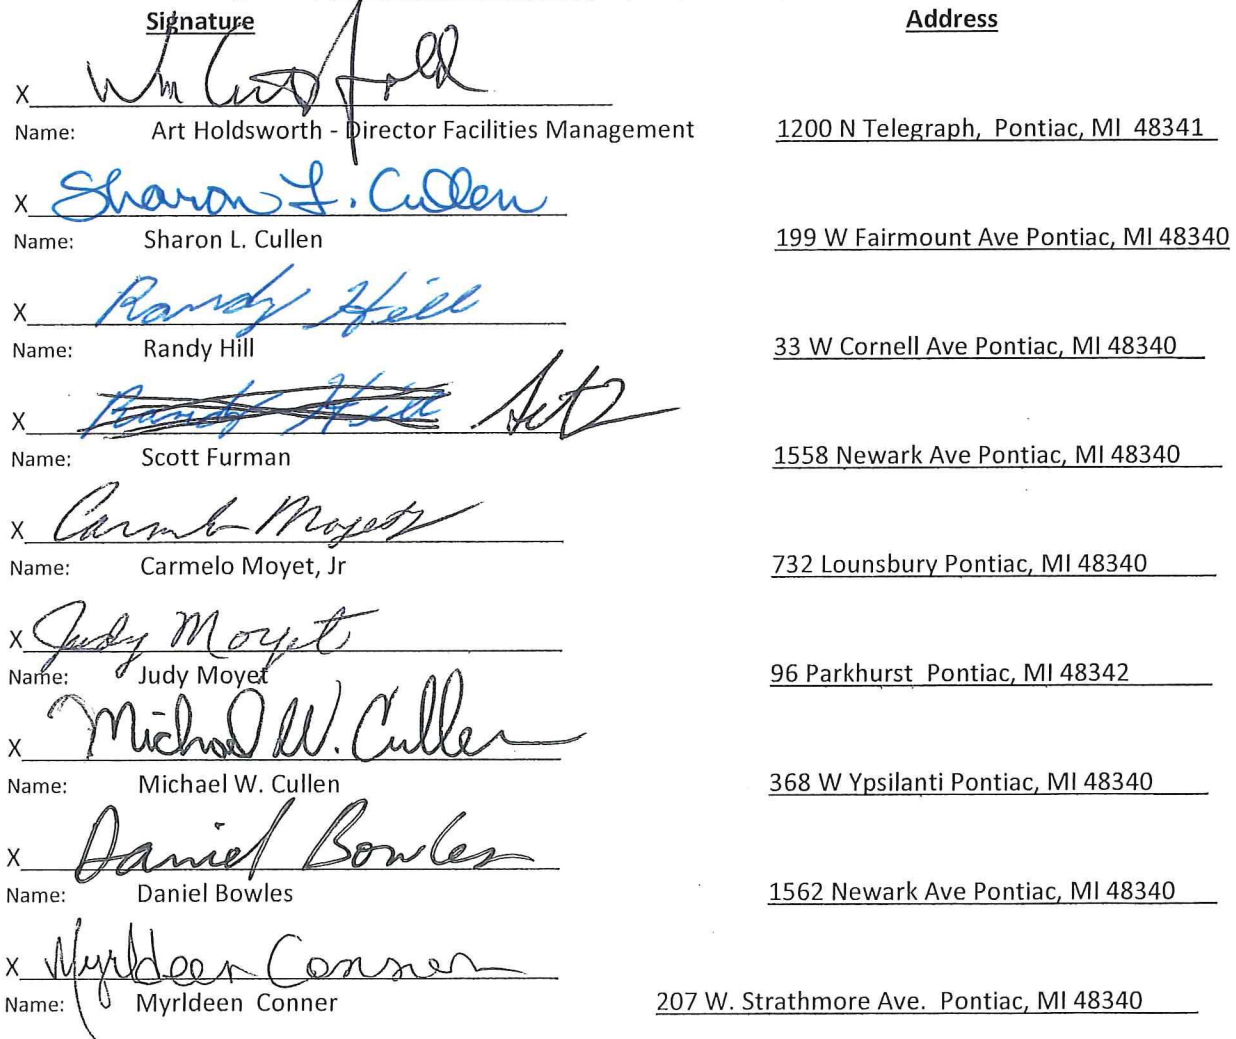 Signature Address
X Wm
Name: Art Holdsworth - Director Facilities Management 1200 N Telegraph, Pontiac, MI 48341
X Sharon L. Cullen
Name: Sharon L. Cullen 199 W Fairmount Ave Pontiac, MI 48340
X Randy Hill
Name: Randy Hill 33 W Cornell Ave Pontiac, MI 48340
X Randy Hill
Name: Scott Furman 1558 Newark Ave Pontiac, MI 48340
X Moyet
Name: Carmelo Moyet, Jr 732 Lounsbury Pontiac, MI 48340
X Judy Moyet
Name: Judy Moyet 96 Parkhurst Pontiac, MI 48342
X Michael W. Cullen
Name: Michael W. Cullen 368 W Ypsilanti Pontiac, MI 48340
X Daniel Bowles
Name: Daniel Bowles 1562 Newark Ave Pontiac, MI 48340
X Myrldeen Conner
Name: Myrldeen Conner 207 W. Strathmore Ave. Pontiac, MI 48340